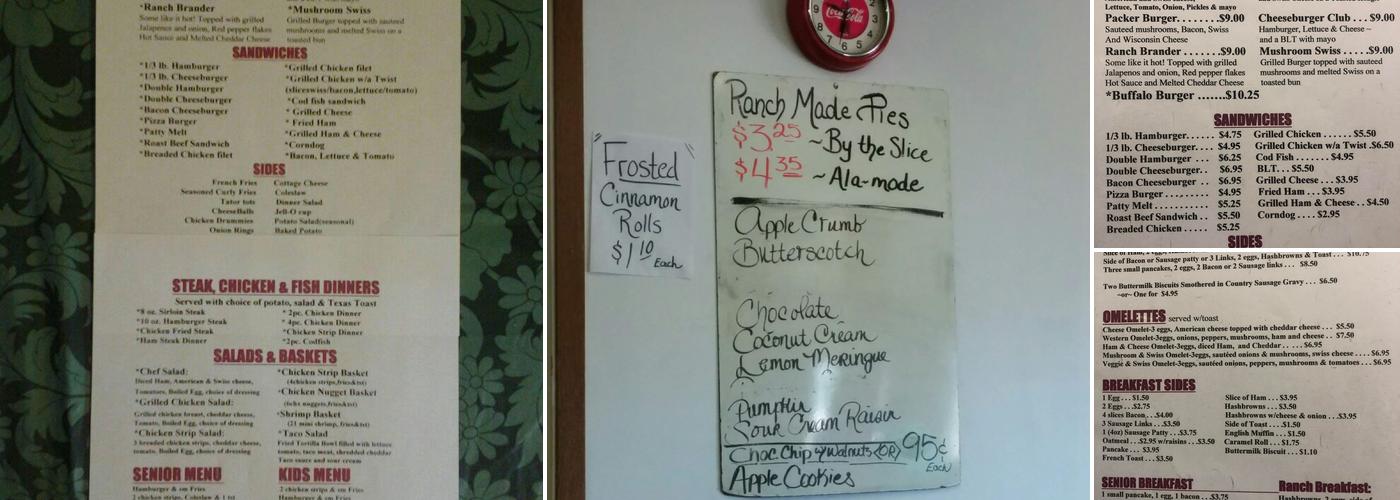 *Ranch Brander
Some like it hot! Topped with grilled
Jalapenos and onion, Red pepper flakes
Hot Sauce and Melted Cheddar Cheese
*Mushroom Swiss
Grilled Burger topped with sauteed
mushrooms and melted Swiss on a
toasted bun
SANDWICHES
*1/3 lb. Hamburger
*1/3 lb. Cheeseburger
*Double Hamburger
*Double Cheeseburger
*Bacon Cheeseburger
*Pizza Burger
*Patty Melt
*Roast Beef Sandwich
*Breaded Chicken filet
*Grilled Chicken filet
*Grilled Chicken w/a Twist
(sliceswiss/bacon,lettuce/tomato)
*Cod fish sandwich
* Grilled Cheese
* Fried Ham
*Grilled Ham & Cheese
*Corndog
*Bacon, Lettuce & Tomato
SIDES
French Fries
Seasoned Curly Fries
Tator tots
CheeseBalls
Chicken Drummies
Onion Rings
Cottage Cheese
Coleslaw
Dinner Salad
Jell-O cup
Potato Salad(seasonal)
Baked Potato
STEAK, CHICKEN & FISH DINNERS
Served with choice of potato, salad & Texas Toast
*8 oz. Sirloin Steak
*10 oz. Hamburger Steak
*Chicken Fried Steak
*Ham Steak Dinner
* 2pc. Chicken Dinner
* 4pc. Chicken Dinner
*Chicken Strip Dinner
*2pc. Codfish
SALADS & BASKETS
*Chef Salad:
Diced Ham, American & Swiss cheese,
Tomatoes, Boiled Egg, choice of dressing
*Grilled Chicken Salad:
Grilled chicken breast, cheddar cheese,
Tomato, Boiled Egg, choice of dressing
*Chicken Strip Salad:
3 breaded chicken strips, cheddar cheese,
tomato, Boiled Egg, choice of dressing
*Chicken Strip Basket
(4chicken strips,fries&tst)
*Chicken Nugget Basket
(6chx nuggets,fries&tst)
*Shrimp Basket
(21 mini shrimp, fries&tst)
*Taco Salad
Fried Tortilla Bowl filled with lettuce
tomato, taco meat, shredded cheddar
Taco sauce and sour cream
SENIOR MENU
Hamburger & sm Fries
KIDS MENU
2 chicken strips & sm Fries
Hamburger & sm Fries
"Frosted"
Cinnamon
Rolls
$1.10 Each
Coca-Cola
Ranch Made Pies
$3.25 ~By the Slice
$4.35 ~Ala-mode
Apple Crumb
Butterscotch
Chocolate
Coconut Cream
Lemon Meringue
Pumpkin
Sour Cream Raisin
Choc Chip w/walnuts (OR) 95¢ Each
Apple Cookies
Lettuce, Tomato, Onion, Pickles & mayo
Packer Burger........$9.00
Sauteed mushrooms, Bacon, Swiss
And Wisconsin Cheese
Ranch Brander .......$9.00
Some like it hot! Topped with grilled
Jalapenos and onion, Red pepper flakes
Hot Sauce and Melted Cheddar Cheese
*Buffalo Burger .......$10.25
Cheeseburger Club ... $9.00
Hamburger, Lettuce & Cheese ~
and a BLT with mayo
Mushroom Swiss .....$9.00
Grilled Burger topped with sauteed
mushrooms and melted Swiss on a
toasted bun
SANDWICHES
1/3 lb. Hamburger...... $4.75
1/3 lb. Cheeseburger.... $4.95
Double Hamburger ... $6.25
Double Cheeseburger.. $6.95
Bacon Cheeseburger .. $6.95
Pizza Burger ......... $4.95
Patty Melt ............ $5.25
Roast Beef Sandwich .. $5.50
Breaded Chicken ..... $5.25
Grilled Chicken ...... $5.50
Grilled Chicken w/a Twist .$6.50
Cod Fish ....... $4.95
BLT... $5.50
Grilled Cheese ... $3.95
Fried Ham ... $3.95
Grilled Ham & Cheese .. $4.50
Corndog .... $2.95
SIDES
Side of Bacon or Sausage patty or 3 Links, 2 eggs, Hashbrowns & Toast ... $10.75
Three small pancakes, 2 eggs, 2 Bacon or 2 Sausage links ... $8.50
Two Buttermilk Biscuits Smothered in Country Sausage Gravy ... $6.50
~or~ One for $4.95
OMELETTES served w/toast
Cheese Omelet-3 eggs, American cheese topped with cheddar cheese ... $5.50
Western Omelet-3eggs, onions, peppers, mushrooms, ham and cheese .. $7.50
Ham & Cheese Omelet-3eggs, diced Ham, and Cheddar ..... $6.95
Mushroom & Swiss Omelet-3eggs, sautéed onions & mushrooms, swiss cheese .... $6.95
Veggie & Swiss Omelet-3eggs, sautéed onions, peppers, mushrooms & tomatoes ... $6.95
BREAKFAST SIDES
1 Egg ... $1.50
2 Eggs ...$2.75
4 slices Bacon....$4.00
3 Sausage Links ...$3.50
1 (4oz) Sausage Patty ...$3.75
Oatmeal ..$2.95 w/raisins ..$3.50
Pancake ... $3.95
French Toast ... $3.50
Slice of Ham ... $3.95
Hashbrowns ... $3.50
Hashbrowns w/cheese & onion ...$3.95
Side of Toast ... $1.50
English Muffin ... $1.50
Caramel Roll ... $1.75
Buttermilk Biscuit ... $1.10
SENIOR BREAKFAST
1 small pancake, 1 egg, 1 bacon ...$3.75
Ranch Breakfast: